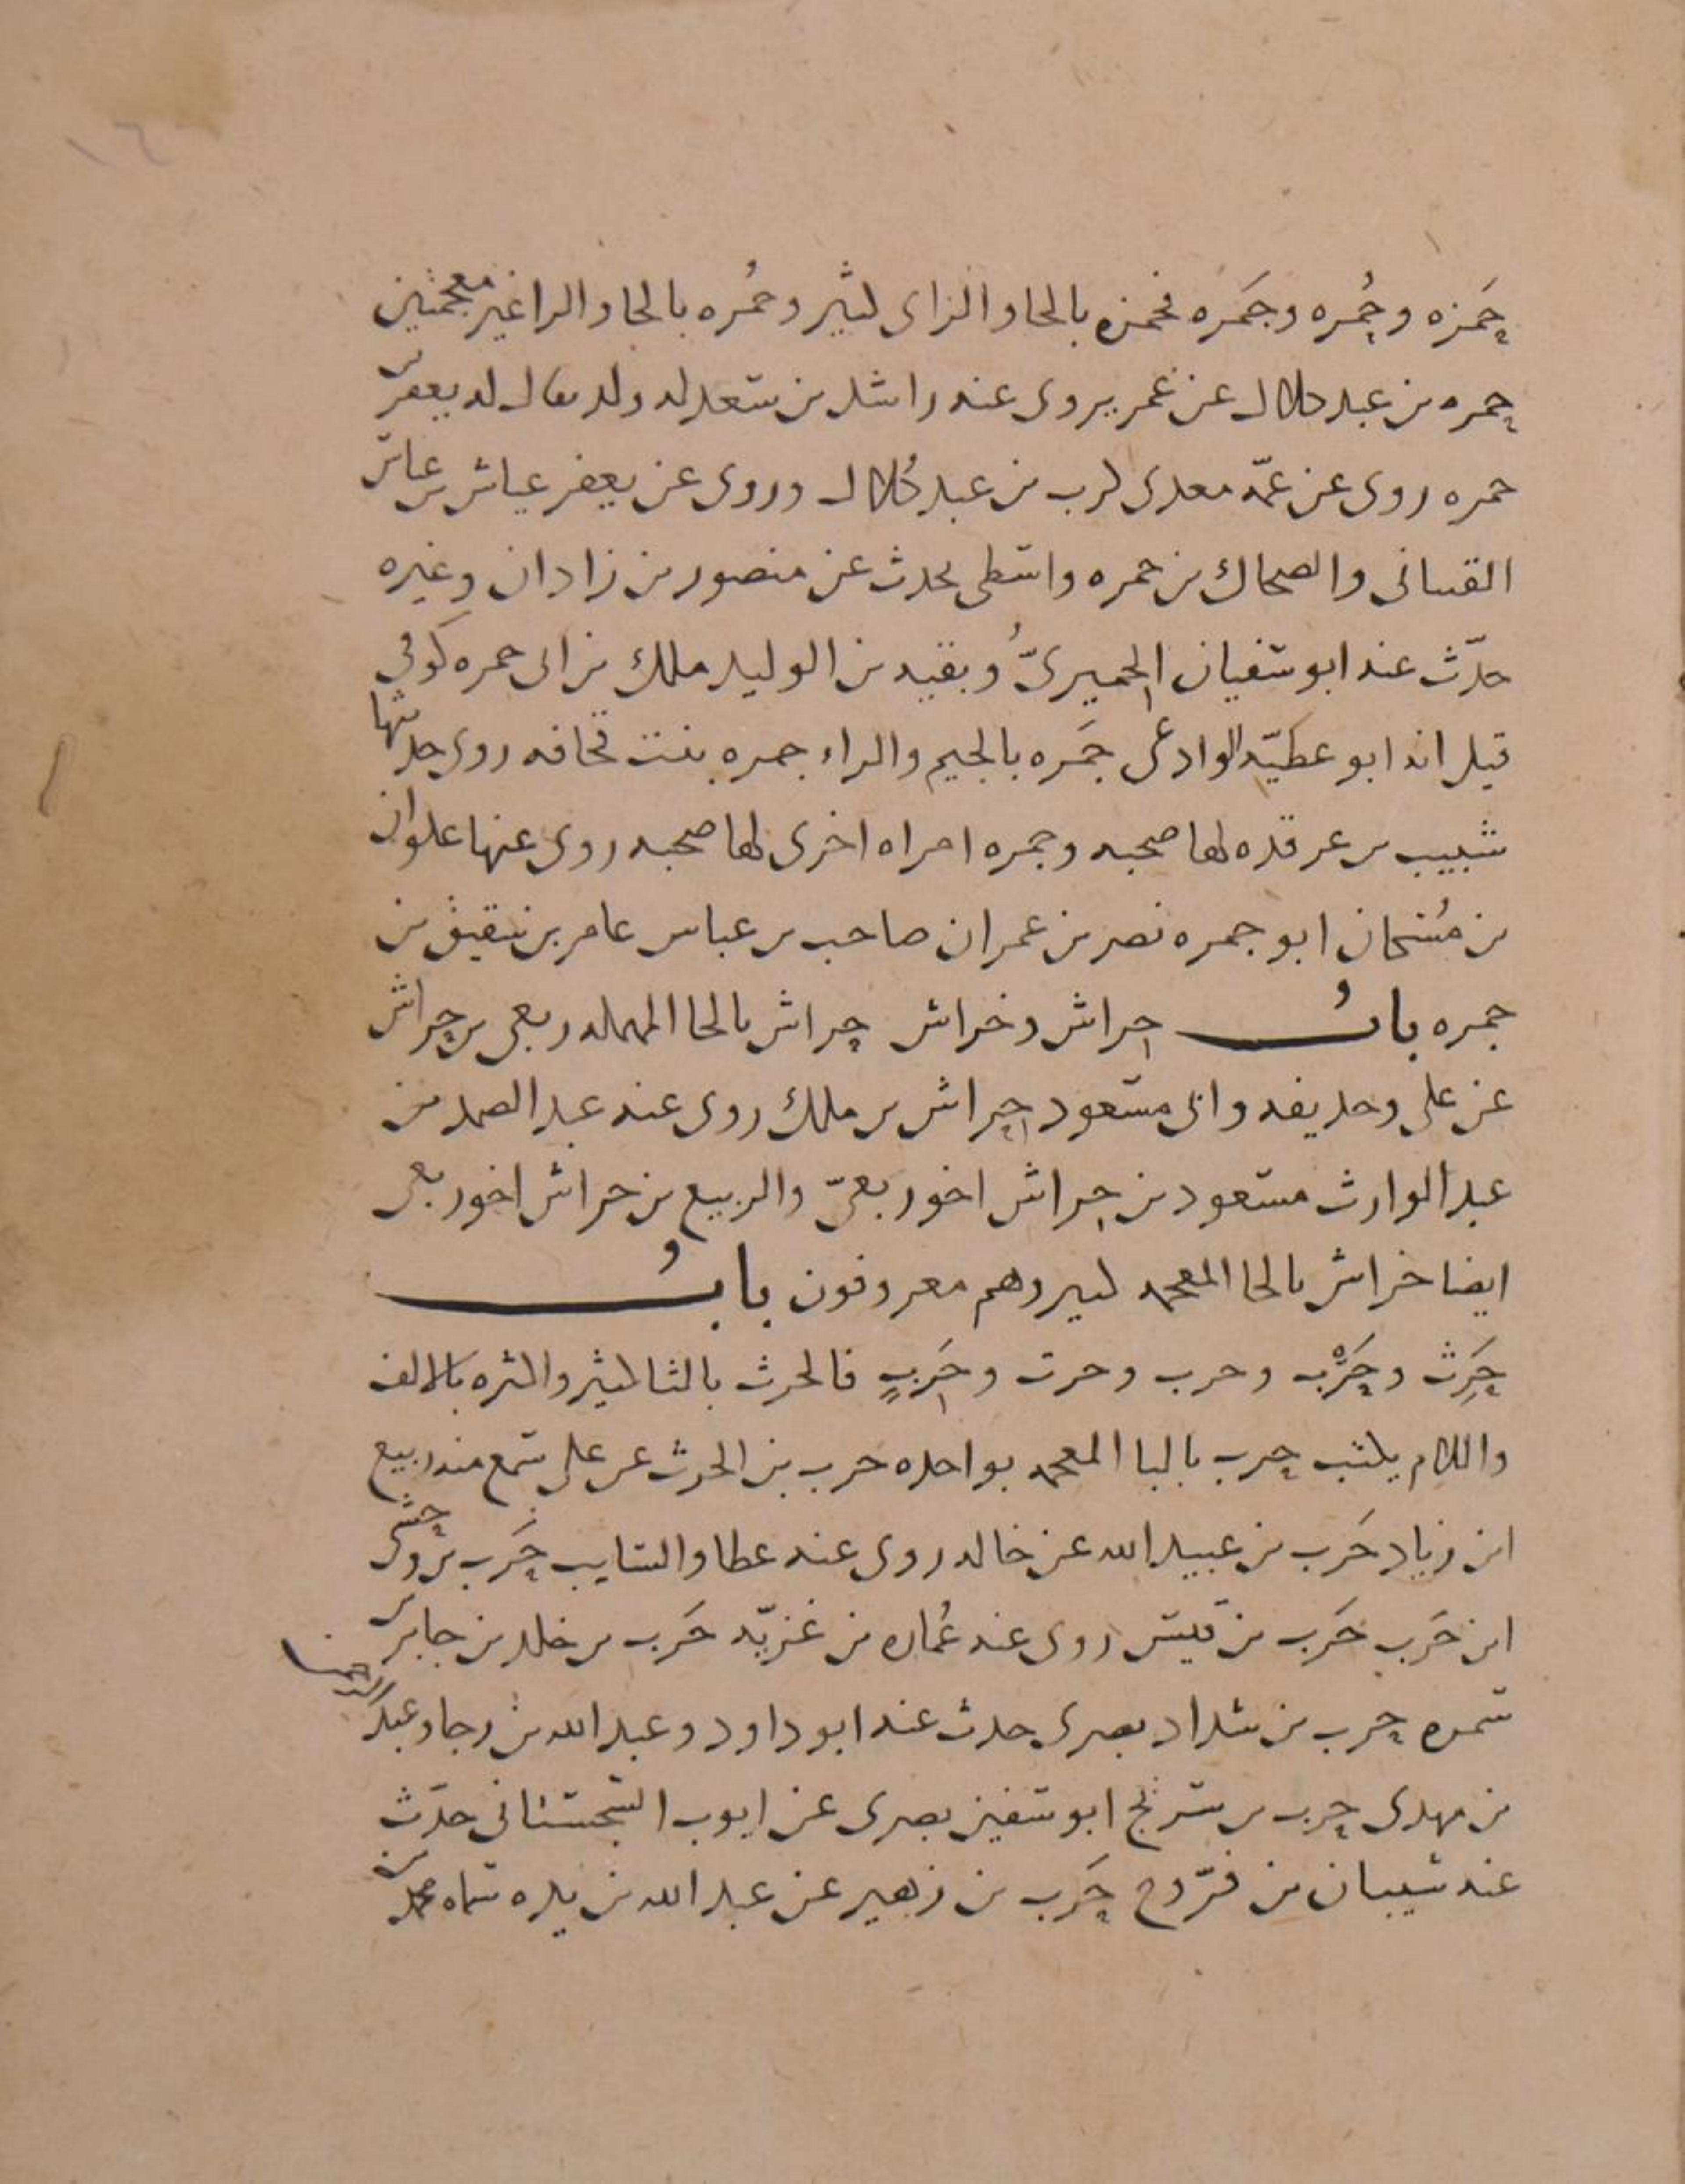 حَمزه وحُمره وجَمره فحمزه بالحا والزاى كثير وحُمره بالحا والرا غير معجمتين
حمره بن عبد كلال عن عمر يروى عنه راشد بن سعد له ولد يقال له يعفر بن
حمره روى عن عمّه معدى كرب بن عبد كُلال وروى عن يعفر عياش بن عباس
القتبانى والضحاك بن حمره واسطى يحدث عن منصور بن زاذان وغيره
حدّث عنه ابو سفيان الحميرىّ وبقيه بن الوليد ملك بن ابى حمره كوفى
قيل انه ابو عطيّه الوادعى جَمره بالجيم والراء جمره بنت قحافه روى حديثها
شبيب بن غرقده لها صحبه وجمره امراه اخرى لها صحبه روى عنها علوان
ابو جمره نصر بن عمران صاحب بن عباس عامر بن شقيق بن
جمره بابُ حراش وخراش حراش بالحا المهمله ربعى بن حراش
عن على وحذيفه وابى مسعود حراش بن ملك روى عنه عبد الصمد بن
عبد الوارث مسعود بن حراش اخو ربعىّ والربيع بن حراش اخو ربعى
ايضا خراش بالخا المعجمه كثير وهم معروفون بابُ
حَرِث وحَرْب وحرب وحرث وحَرِبٍ فالحرث بالثا كثير واكثره بالالف
واللام يكتب حرب بالبا المعجمه بواحده حرب بن الحرث عن على سمع منه ربيع
ابن زياد حَرب بن عبيد الله عن خاله روى عنه عطا والسايب حَرب بن وحشى
ابن حَرب حَرب بن قيس روى عنه عُماره بن غزيّه حَرب بن خلد بن جابر بن
سمره حرب بن شداد بصرى حدث عنه ابو داود وعبد الله بن رجا وعبد الرحمن
بن مهدى حرب بن سريج ابو سفين بصرى عن ايوب السجستانى حدّث
عنه شيبان بن فرّوخ حَرب بن زهير عن عبد الله بن بريده سماه محمد بن